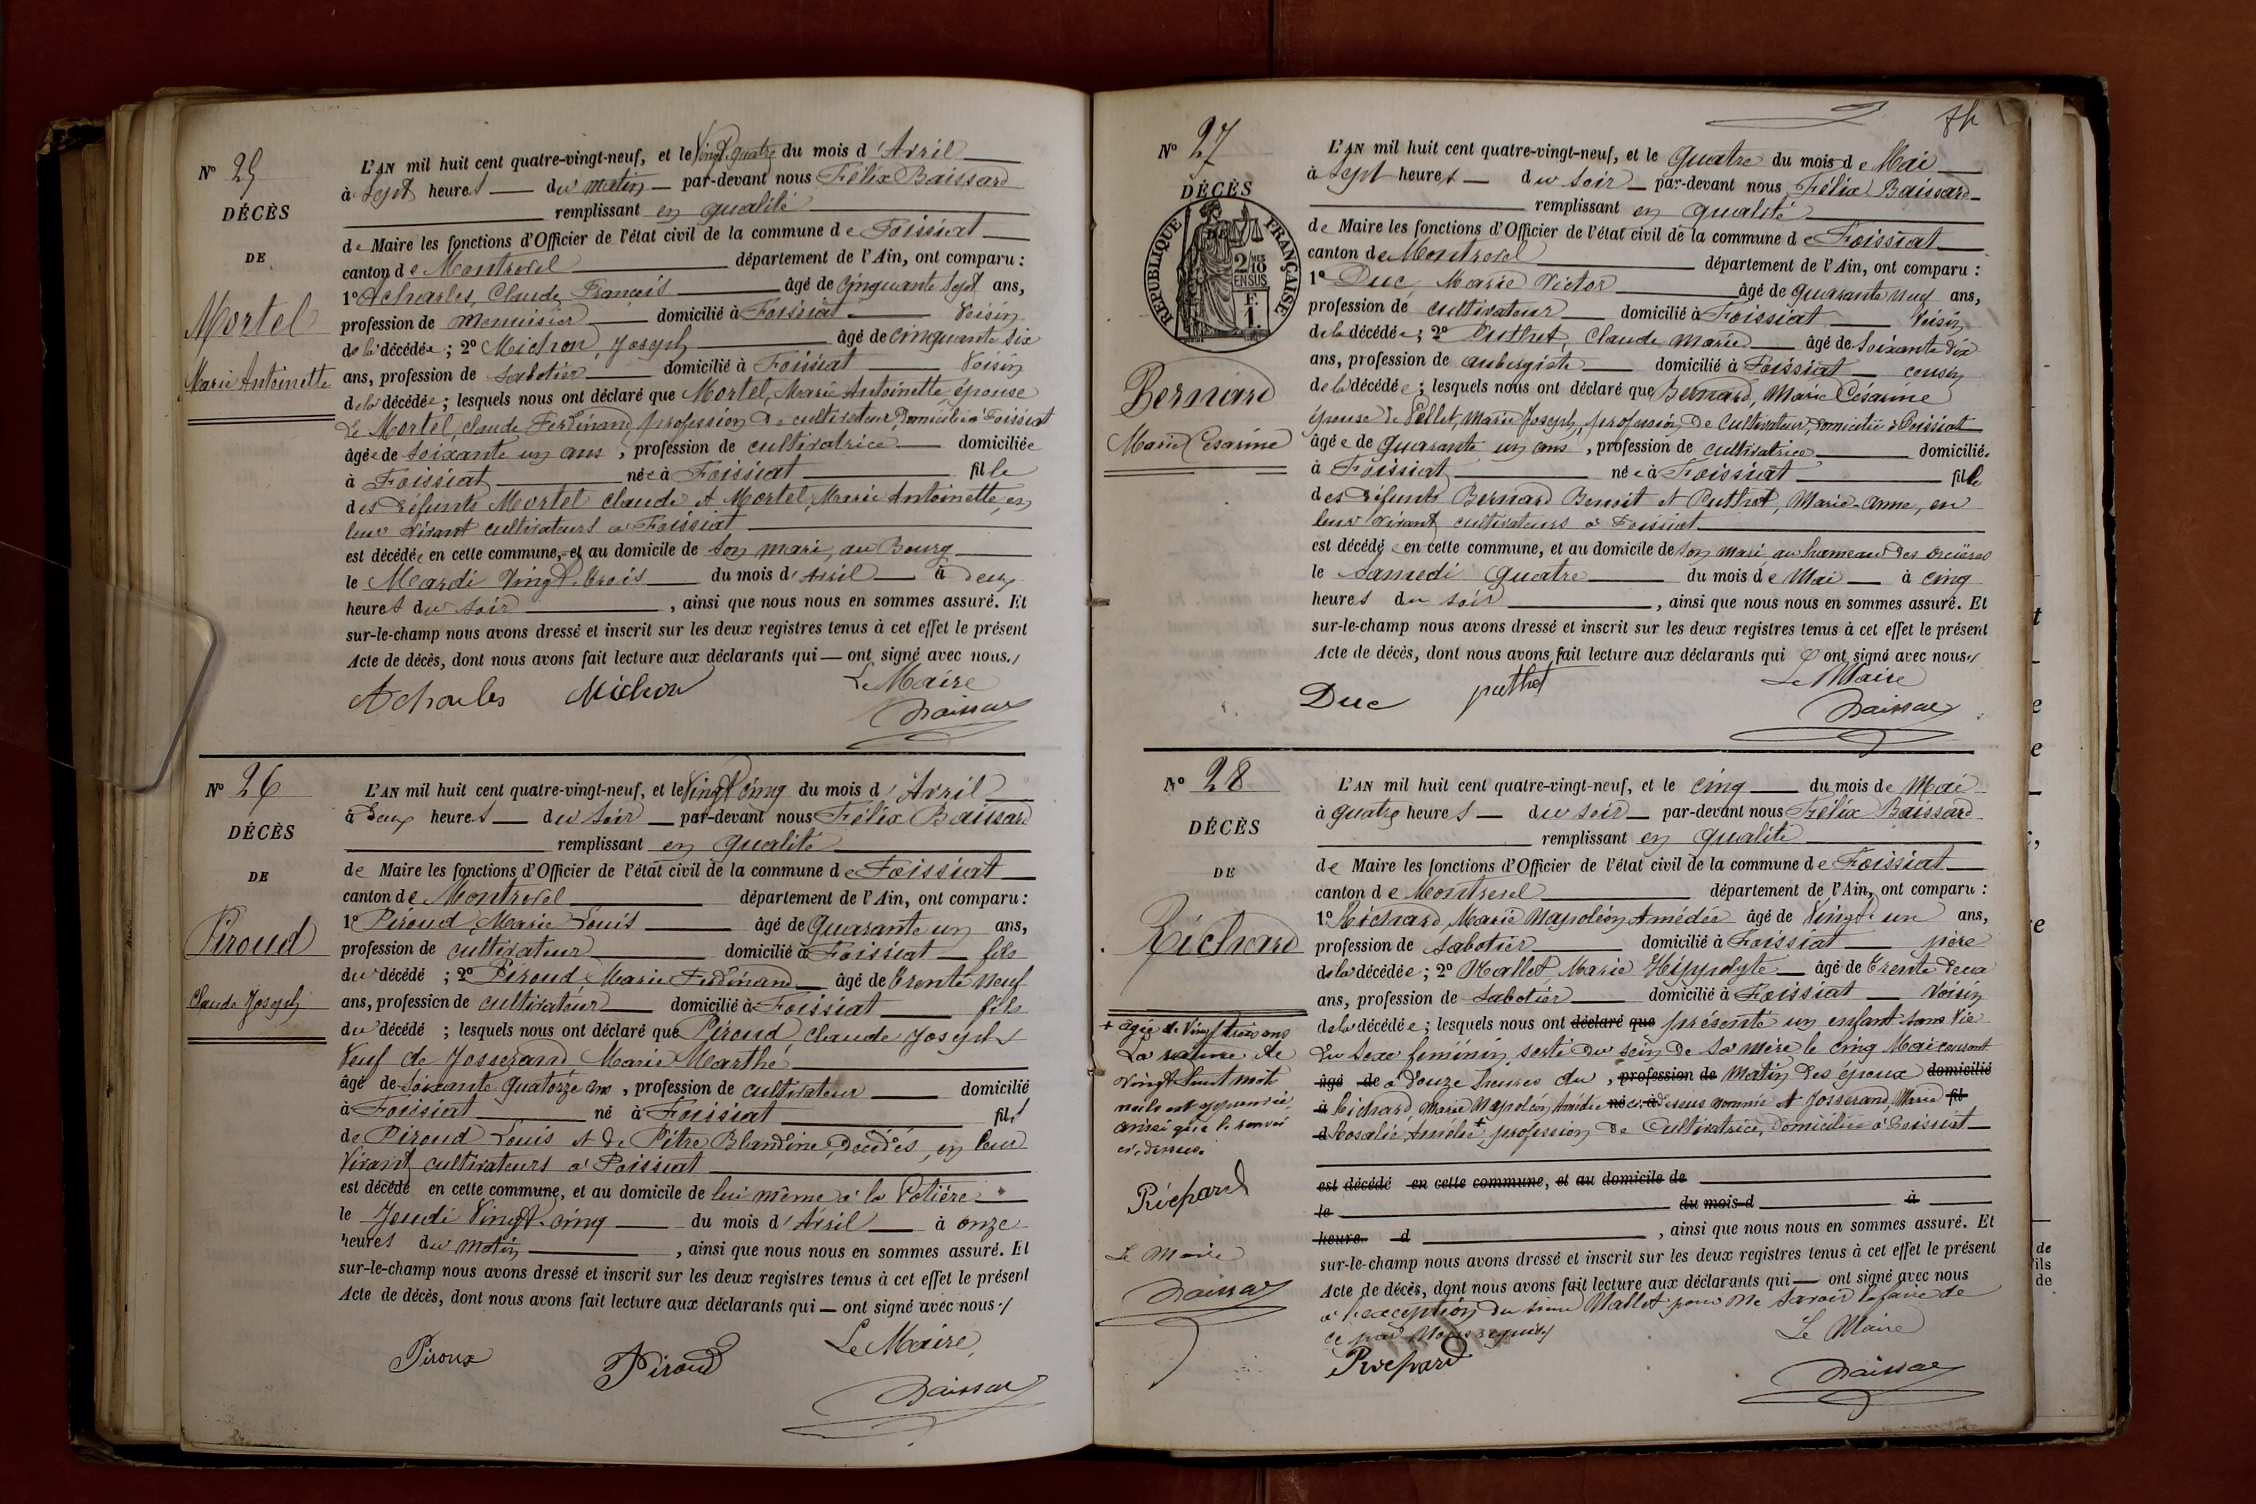 N° 25
DÉCÈS
DE
Mortel
Marie Antoinette
L'AN mil huit cent quatre-vingt-neuf, et le Vingt quatre du mois d'Avril
à Sept heures du matin par-devant nous Félix Baissard
remplissant en qualité
de Maire les fonctions d'Officier de l'état civil de la commune de Foissiat
canton de Montrevel département de l'Ain, ont comparu :
1° Acharles, Claude François âgé de cinquante sept ans,
profession de menuisier domicilié à Foissiat Voisin
de la décédée ; 2° Michon, Joseph âgé de cinquante six
ans, profession de sabotier domicilié à Foissiat Voisin
de la décédée ; lesquels nous ont déclaré que Mortel, Marie Antoinette, épouse
de Mortel, Claude Ferdinand, profession de cultivateur, domicilié à Foissiat
âgée de soixante un ans, profession de cultivatrice domiciliée
à Foissiat née à Foissiat fille
des défunts Mortel Claude et Mortel, Marie Antoinette, en
leur vivant cultivateurs à Foissiat
est décédée en cette commune, et au domicile de son mari, au Bourg
le Mardi vingt-trois du mois d'Avril à deux
heures du soir, ainsi que nous nous en sommes assuré. Et
sur-le-champ nous avons dressé et inscrit sur les deux registres tenus à cet effet le présent
Acte de décès, dont nous avons fait lecture aux déclarants qui — ont signé avec nous.
Le Maire
Acharles Michon Baissard
N° 26
DÉCÈS
DE
Piroud
Claude Joseph
L'AN mil huit cent quatre-vingt-neuf, et le Vingt cinq du mois d'Avril
à Deux heures du soir par-devant nous Félix Baissard
remplissant en qualité
de Maire les fonctions d'Officier de l'état civil de la commune de Foissiat
canton de Montrevel département de l'Ain, ont comparu :
1° Piroud, Marie Louis âgé de Quarante un ans,
profession de cultivateur domicilié à Foissiat fils
du décédé ; 2° Piroud Marie Ferdinand âgé de trente neuf
ans, profession de cultivateur domicilié à Foissiat fils
du décédé ; lesquels nous ont déclaré que Piroud, Claude Joseph
Veuf de Josserand Marie Marthe
âgé de soixante quatorze ans, profession de cultivateur domicilié
à Foissiat né à Foissiat fils
de Piroud Louis et de Pitre Blandine, Décédés, en leur
vivant cultivateurs à Foissiat
est décédé en cette commune, et au domicile de lui même à la Potière
le Jeudi Vingt-cinq du mois d'Avril à onze
heures du matin, ainsi que nous nous en sommes assuré. Et
sur-le-champ nous avons dressé et inscrit sur les deux registres tenus à cet effet le présent
Acte de décès, dont nous avons fait lecture aux déclarants qui — ont signé avec nous.
Le Maire,
Piroux Piroud Baissard
N° 27
DÉCÈS
RÉPUBLIQUE FRANÇAISE
2/10 MES
EN SUS
F.
1.
Bernard
Marie Césarine
L'AN mil huit cent quatre-vingt-neuf, et le Quatre du mois de Mai
à Sept heures du soir par-devant nous Félix Baissard
remplissant en qualité
de Maire les fonctions d'Officier de l'état civil de la commune de Foissiat
canton de Montrevel département de l'Ain, ont comparu :
1° Duc, Marie Victor âgé de quarante neuf ans,
profession de cultivateur domicilié à Foissiat Voisin
de la décédée ; 2° Puthet, Claude Marie âgé de Soixante dix
ans, profession de aubergiste domicilié à Foissiat cousin
de la décédée ; lesquels nous ont déclaré que Bernard, Marie Césarine
épouse de Pellet, Marie Joseph, profession de Cultivateur, domicilié à Foissiat
âgée de quarante un ans, profession de cultivatrice domiciliée
à Foissiat née à Foissiat fille
des défunts Bernard Benoit et Puthet, Marie-Anne, en
leur vivant cultivateurs à Foissiat
est décédée en cette commune, et au domicile de son mari au hameau des Orcières
le Samedi Quatre du mois de Mai à cinq
heures du soir, ainsi que nous nous en sommes assuré. Et
sur-le-champ nous avons dressé et inscrit sur les deux registres tenus à cet effet le présent
Acte de décès, dont nous avons fait lecture aux déclarants qui ont signé avec nous.
Le Maire
Duc puthet Baissard
N° 28
DÉCÈS
DE
Richard
L'AN mil huit cent quatre-vingt-neuf, et le cinq du mois de Mai
à quatre heures du soir par-devant nous Félix Baissard
remplissant en qualité
de Maire les fonctions d'Officier de l'état civil de la commune de Foissiat
canton de Montrevel département de l'Ain, ont comparu :
1° Richard, Marie Napoléon Amédée âgé de Vingt un ans,
profession de sabotier domicilié à Foissiat père
de la décédée ; 2° Mallet Marie Hippolyte âgé de trente deux
ans, profession de Sabotier domicilié à Foissiat Voisin
de la décédée ; lesquels nous ont déclaré que présenté un enfant sans vie
du sexe féminin, sorti du sein de sa mère le cinq Mai courant
âgé de à douze heures du, profession de Matin des époux domicilié
à Richard, Marie Napoléon Amédée né à dessus nommé et Josserand, Marie fil
d Rosalie Amélie + profession de Cultivatrice, domiciliée à Foissiat
est décédé en cette commune, et au domicile de
le du mois d à
heure d , ainsi que nous nous en sommes assuré. Et
sur-le-champ nous avons dressé et inscrit sur les deux registres tenus à cet effet le présent
Acte de décès, dont nous avons fait lecture aux déclarants qui — ont signé avec nous
à l'exception du sieur Mallet pour ne savoir le faire de
ce par Nous requis
Le Maire
Richard Baissard
+ âgée de Vingt trois ans
La rature de
vingt huit mots
nuls est approuvée
ainsi que le renvoi
ci-dessus.
Richard
Le Maire
Baissard